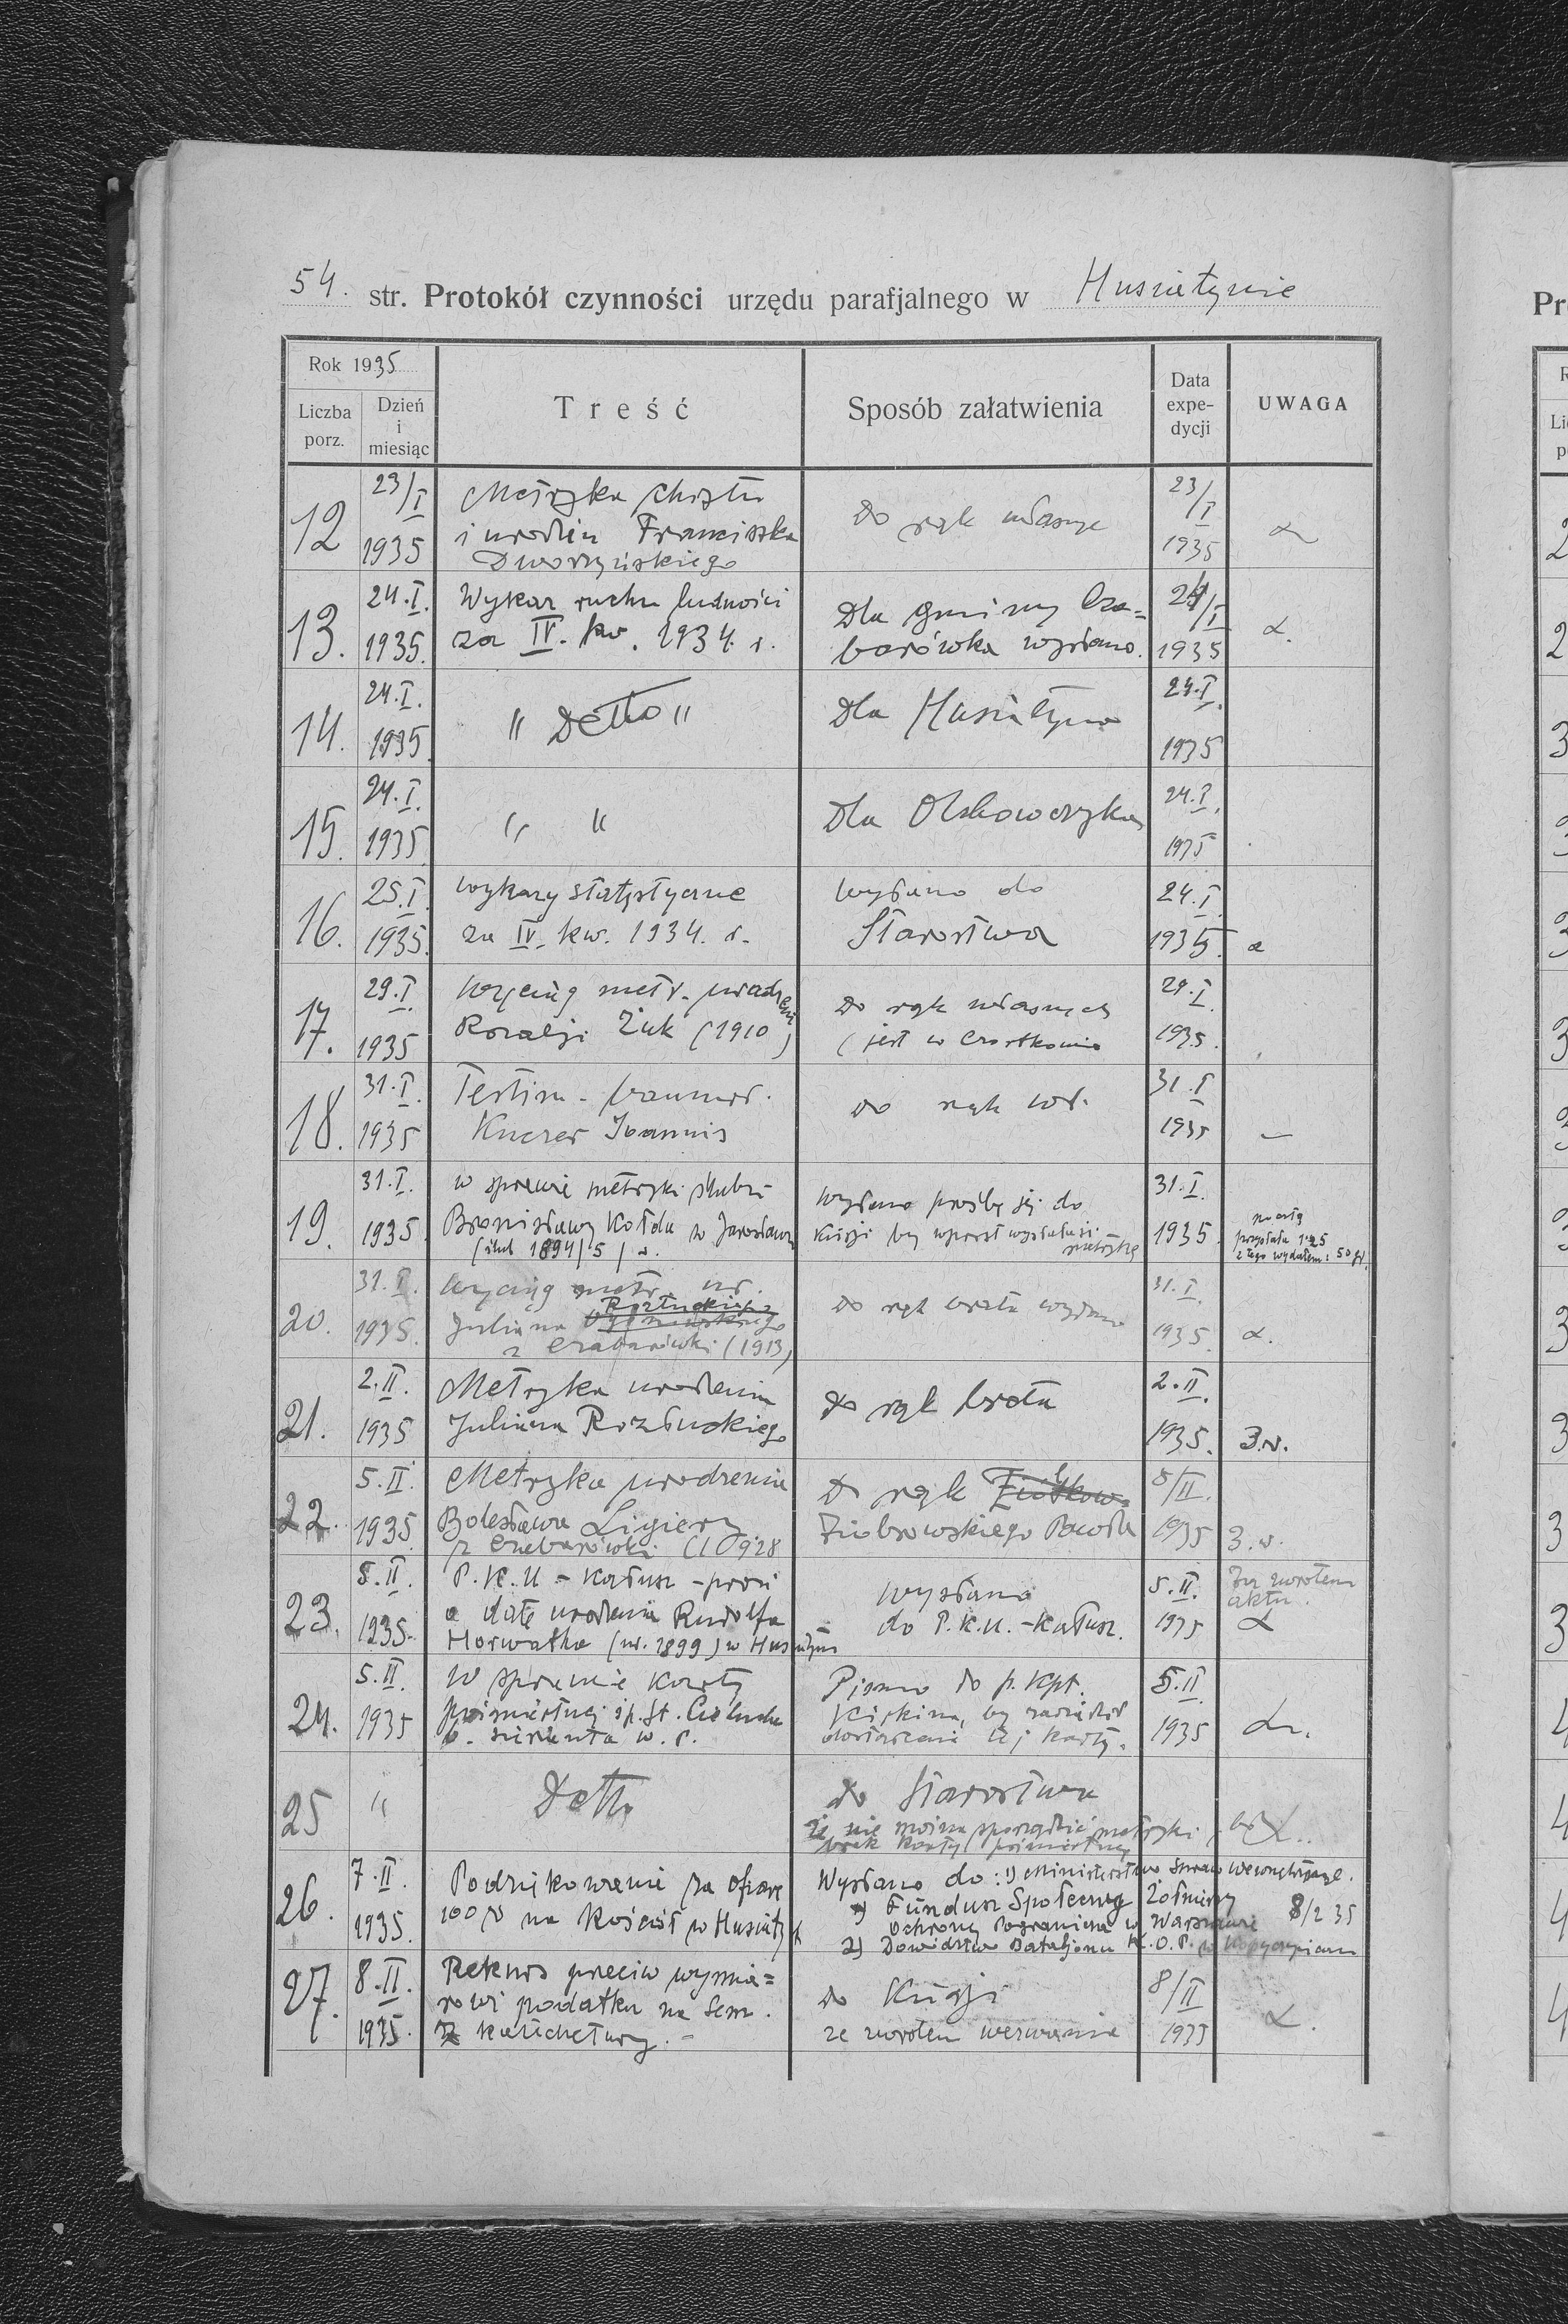 54. str. Protokół czynności urzędu parafjalnego w Husiatynie
Rok 1935
Liczba porz.
Dzień i miesiąc
Treść
Sposób załatwienia
Data expe-dycji
UWAGA
12
23/I 1935
Metryka chrztu
i urodzin Franciszka
Dworzyńskiego
do rąk własnye
23/I 1935
13.
24.I. 1935.
Wykaz ruchu ludności
za IV. kw. 1934. r.
Dla gminy Cza=
barówka wysłano.
24/I 1935
14.
24.I. 1935.
" Detto "
Dla Husiatyna
24.I. 1935
15.
24.I. 1935.
" "
Dla Olchowczyka
24.I. 1935
16.
25.I. 1935.
wykazy statystyczne
za IV. kw. 1934. r.
wysłano do
Starostwa
24.I. 1935.
17.
29.I. 1935
Wyciąg metr. urodzeni
Rozalji Żuk (1910)
do rąk własnych
(jest w Czortkowie
29.I. 1935.
18.
31.I. 1935
Testim. bannor.
Kuczer Joannis
do rąk wł.
31.I 1935
19.
31.I. 1935
w sprawie metryki ślubu
Bronisławy Kołdu w Jarosławiu
(ślub 1894/5) r.
wysłano prośbę jej do
Kurji by wprost wysłała jej
metrykę
31.I. 1935.
przysłała 1.25
z tego wydałem: 50 gr.
20.
31.I. 1935.
Wyciąg metr. ur.
Rozłuckiego
Juliana
z Czabarówki (1913)
do rąk brata wydano
31.I. 1935.
21.
2.II. 1935
Metryka urodzenia
Juliana Rozłuckiego
do rąk brata
2.II. 1935.
3.v.
22.
5.II. 1935.
Metryka urodzenia
Bolesława Ligiery
z Czabarówki (1928
Do rąk Ziółkow.
Ziobrowskiego Pawła
5/II. 1935
3.v.
23.
5.II. 1935.
P.K.U. - Kałusz - prosi
o datę urodzenia Rudolfa
Horwatha (ur. 1899) w Husiatyn
wysłano
do P.K.U. - Kałusz.
5.II. 1935
Za zwrotem
aktu.
24.
5.II. 1935
W sprawie karty
pośmiertnej śp. St. Cielucha
b. sierżanta w. p.
Pismo do p. kpt.
by zarządził
dostarczenie tej karty.
5.II. 1935
25
"
Detto
do Starostwa
że nie można sporządzić metryki,
brak karty pośmiertnej
26.
7.II. 1935.
Podziękowanie za ofiarę
100 zł na kościół w Husiaty
Wysłano do: 1) Ministerstwo Spraw Wewnętrznych.
Fundusz Społeczny Żołnierzy
Ochrony Pogranicza w Warszawie
2) Dowództwo Bataljonu K.O.P. w Kopyczyńcach
8/2 35
27.
8.II. 1935.
Rekurs przeciw wymia=
rowi podatku na Sem.
z katichetury. -
do Kurji
ze zwrotem wezwania
8/II 1935